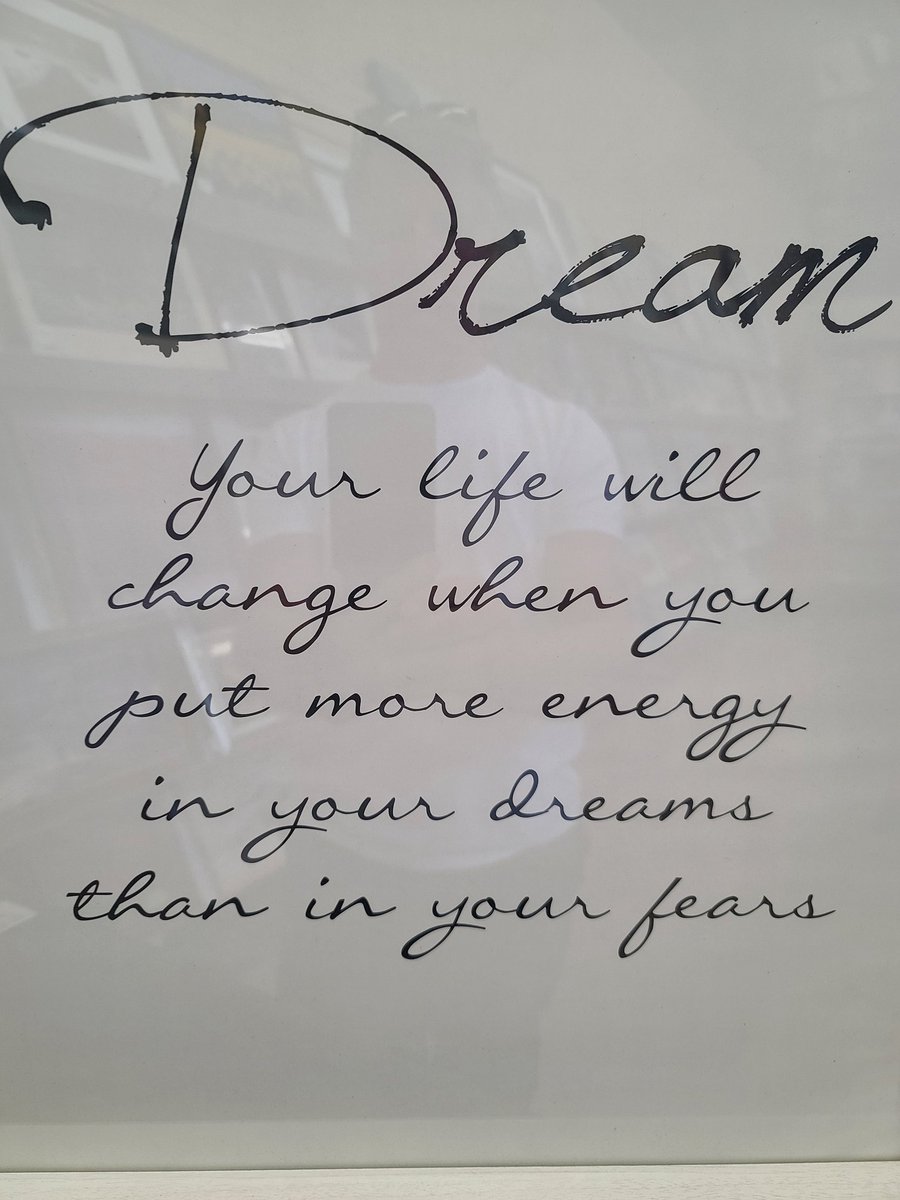 Dream
Your life will
change when you
put more energy
in your dreams
than in your fears